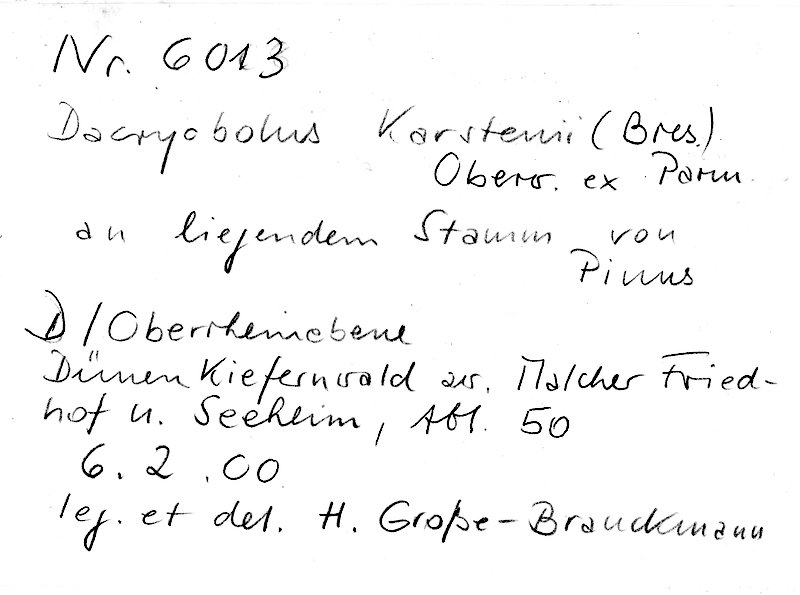 Nr. 6013
Dacryobolus Karstenii (Bres.)
Oberw. ex Parm.
an liegendem Stamm von
Pinus
D/Oberrheinebene
Dünen Kiefernwald zw. Malcher Fried-
hof u. Seeheim, Abt. 50
6. 2. 00
leg. et det. H. Große-Brauckmann